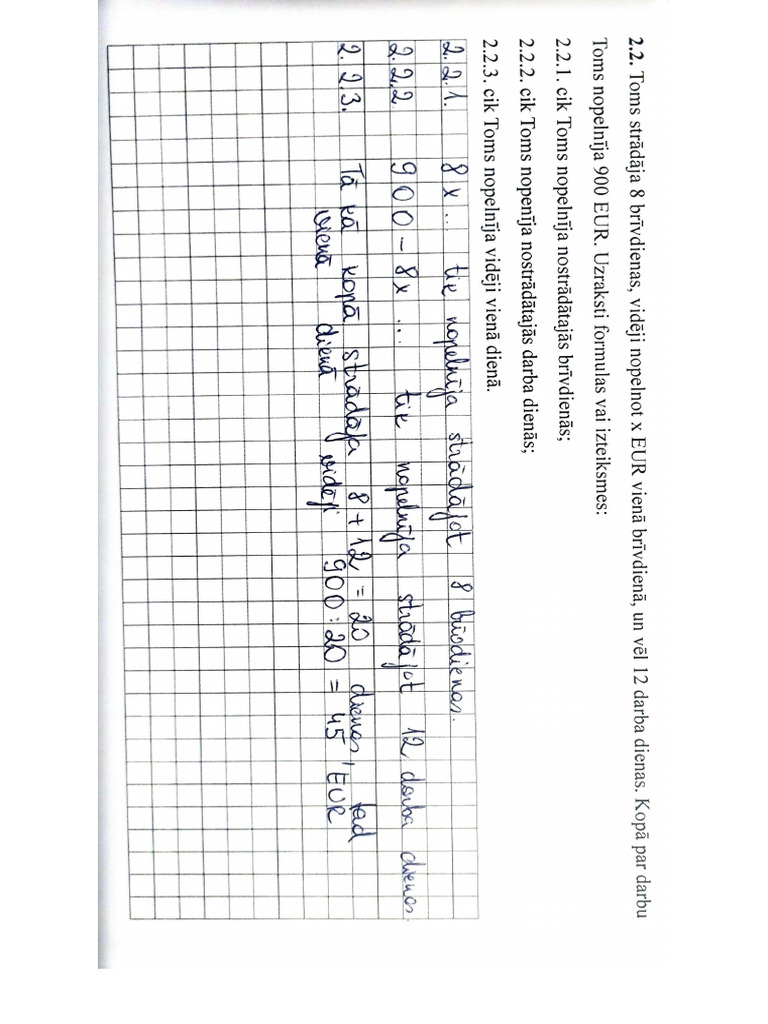 2.2. Toms strādāja 8 brīvdienas, vidēji nopelnot x EUR vienā brīvdienā, un vēl 12 darba dienas. Kopā par darbu
Toms nopelnīja 900 EUR. Uzraksti formulas vai izteiksmes:
2.2.1. cik Toms nopelnīja nostrādātajās brīvdienās;
2.2.2. cik Toms nopenīja nostrādātajās darba dienās;
2.2.3. cik Toms nopelnīja vidēji vienā dienā.
2.2.1. 8x ... tik nopelnīja strādājot 8 brīvdienas.
2.2.2 900 - 8x ... tik nopelnīja strādājot 12 darba dienas.
2.2.3. Tā kā kopā strādāja 8 + 12 = 20 dienas, tad
vienā dienā vidēji 900 : 20 = 45 EUR